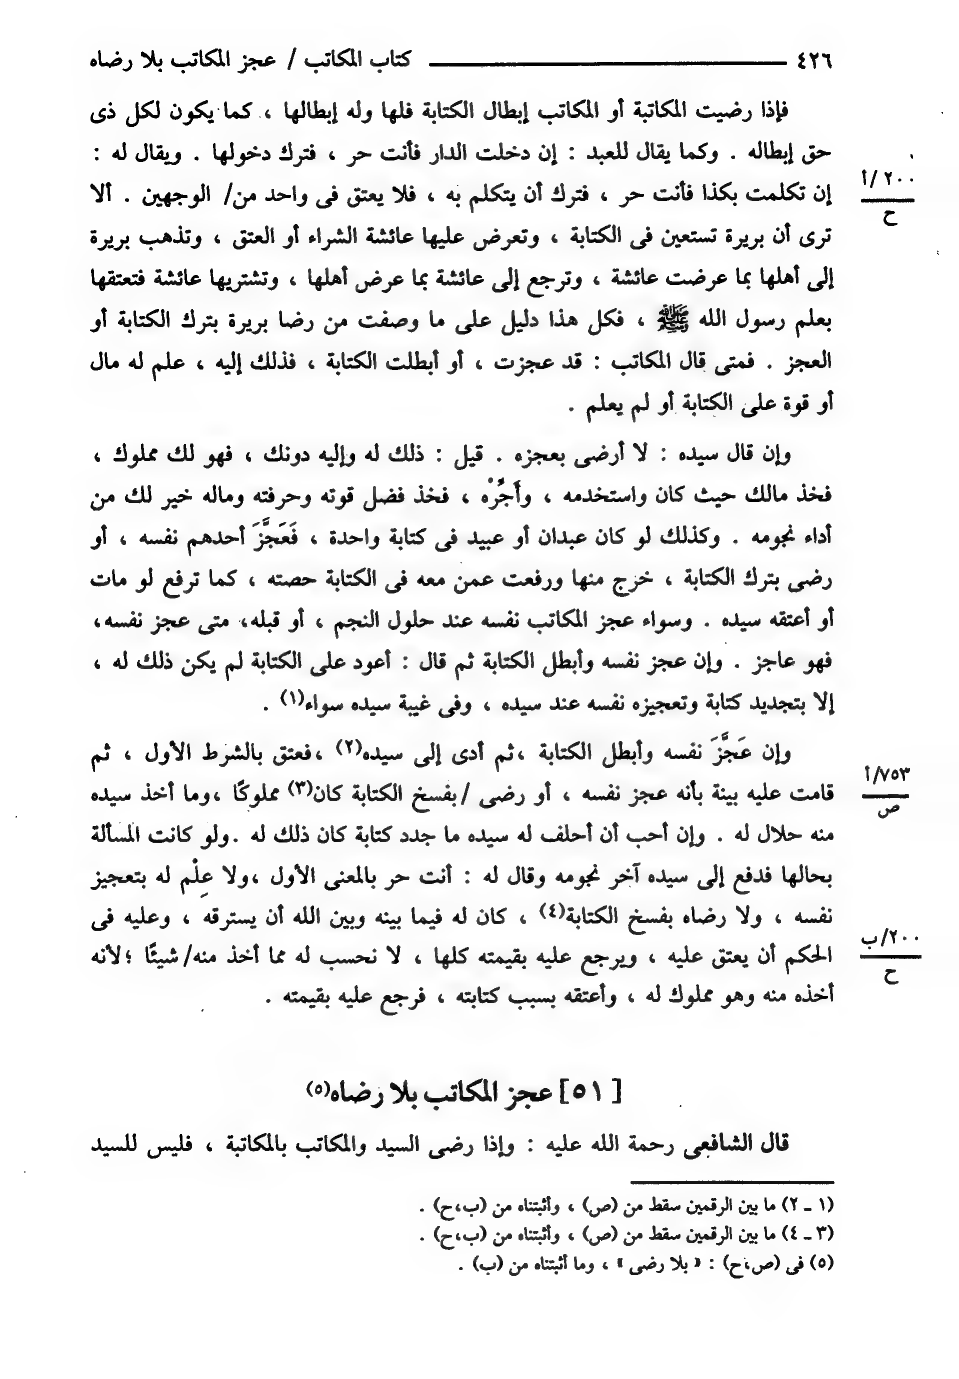 ٤٢٦ ـــــــــــ كتاب المكاتب / عجز المكاتب بلا رضاه
فإذا رضيت المكاتبة أو المكاتب إبطال الكتابة فلها وله إبطالها ، كما يكون لكل ذى
حق إبطاله . وكما يقال للعبد : إن دخلت الدار فأنت حر ، فترك دخولها . ويقال له :
إن تكلمت بكذا فأنت حر ، فترك أن يتكلم به ، فلا يعتق فى واحد من/ الوجهين . ألا
٢٠٠/أ
ح
ترى أن بريرة تستعين فى الكتابة ، وتعرض عليها عائشة الشراء أو العتق ، وتذهب بريرة
إلى أهلها بما عرضت عائشة ، وترجع إلى عائشة بما عرض أهلها ، وتشتريها عائشة فتعتقها
بعلم رسول الله ﷺ ، فكل هذا دليل على ما وصفت من رضا بريرة بترك الكتابة أو
العجز . فمتى قال المكاتب : قد عجزت ، أو أبطلت الكتابة ، فذلك إليه ، علم له مال
أو قوة على الكتابة أو لم يعلم .
وإن قال سيده : لا أرضى بعجزه . قيل : ذلك له وإليه دونك ، فهو لك مملوك ،
فخذ مالك حيث كان واستخدمه ، وأَجِّرْه ، فخذ فضل قوته وحرفته وماله خير لك من
أداء نجومه . وكذلك لو كان عبدان أو عبيد فى كتابة واحدة ، فَعَجَّزَ أحدهم نفسه ، أو
رضى بترك الكتابة ، خرج منها ورفعت عمن معه فى الكتابة حصته ، كما ترفع لو مات
أو أعتقه سيده . وسواء عجز المكاتب نفسه عند حلول النجم ، أو قبله، متى عجز نفسه،
فهو عاجز . وإن عجز نفسه وأبطل الكتابة ثم قال : أعود على الكتابة لم يكن ذلك له ،
إلا بتجديد كتابة وتعجيزه نفسه عند سيده ، وفى غيبة سيده سواء(١) .
وإن عَجَّزَ نفسه وأبطل الكتابة ،ثم أدى إلى سيده(٢) ،فعتق بالشرط الأول ، ثم
قامت عليه بينة بأنه عجز نفسه ، أو رضى /بفسخ الكتابة كان(٣) مملوكًا ،وما أخذ سيده
٧٥٣/أ
ص
منه حلال له . وإن أحب أن أحلف له سيده ما جدد كتابة كان ذلك له .ولو كانت المسألة
بحالها فدفع إلى سيده آخر نجومه وقال له : أنت حر بالمعنى الأول ،ولا عِلْم له بتعجيز
نفسه ، ولا رضاه بفسخ الكتابة(٤) ، كان له فيما بينه وبين الله أن يسترقه ، وعليه فى
الحكم أن يعتق عليه ، ويرجع عليه بقيمته كلها ، لا نحسب له مما أخذ منه/ شيئًا ؛لأنه
٢٠٠/ب
ح
أخذه منه وهو مملوك له ، وأعتقه بسبب كتابته ، فرجع عليه بقيمته .
[ ٥١ ] عجز المكاتب بلا رضاه(٥)
قال الشافعى رحمة الله عليه : وإذا رضى السيد والمكاتب بالمكاتبة ، فليس للسيد
(١ ـ ٢) ما بين الرقمين سقط من (ص) ، وأثبتناه من (ب،ح) .
(٣ ـ ٤) ما بين الرقمين سقط من (ص) ، وأثبتناه من (ب،ح) .
(٥) فى (ص،ح) : « بلا رضى » ، وما أثبتناه من (ب) .